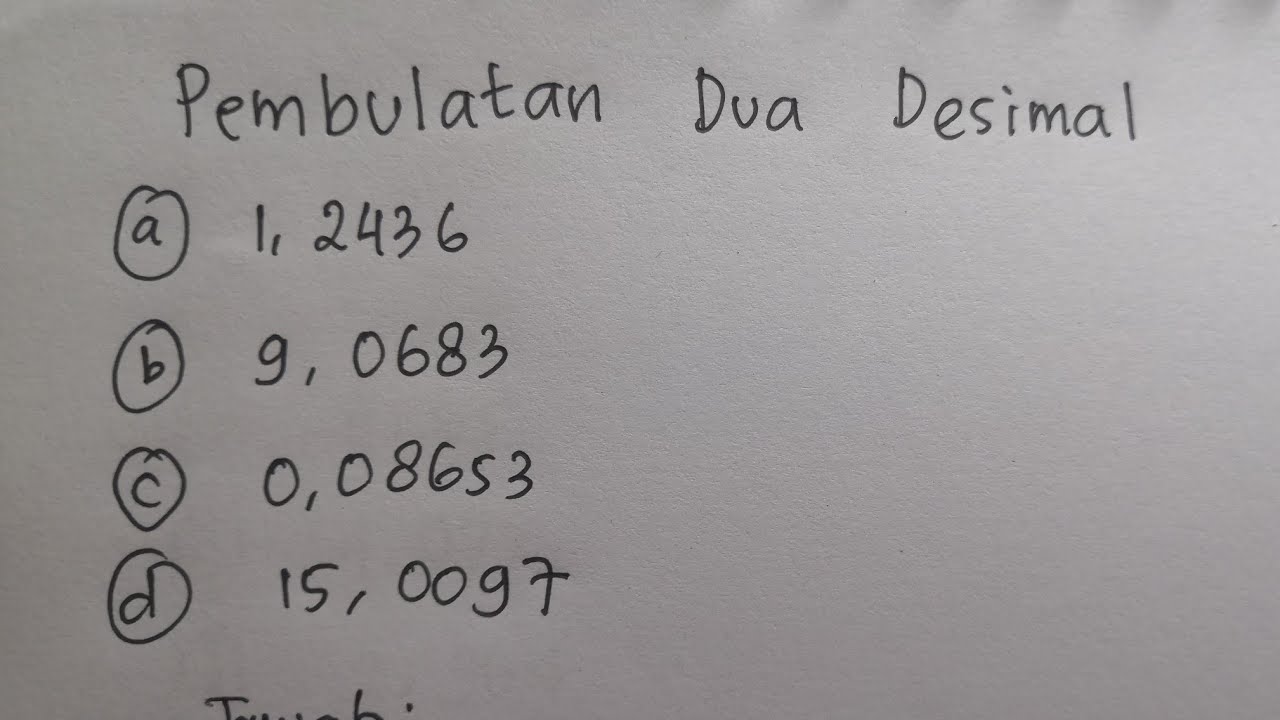 Pembulatan Dua Desimal
a 1,2436
b 9,0683
c 0,08653
d 15,0097